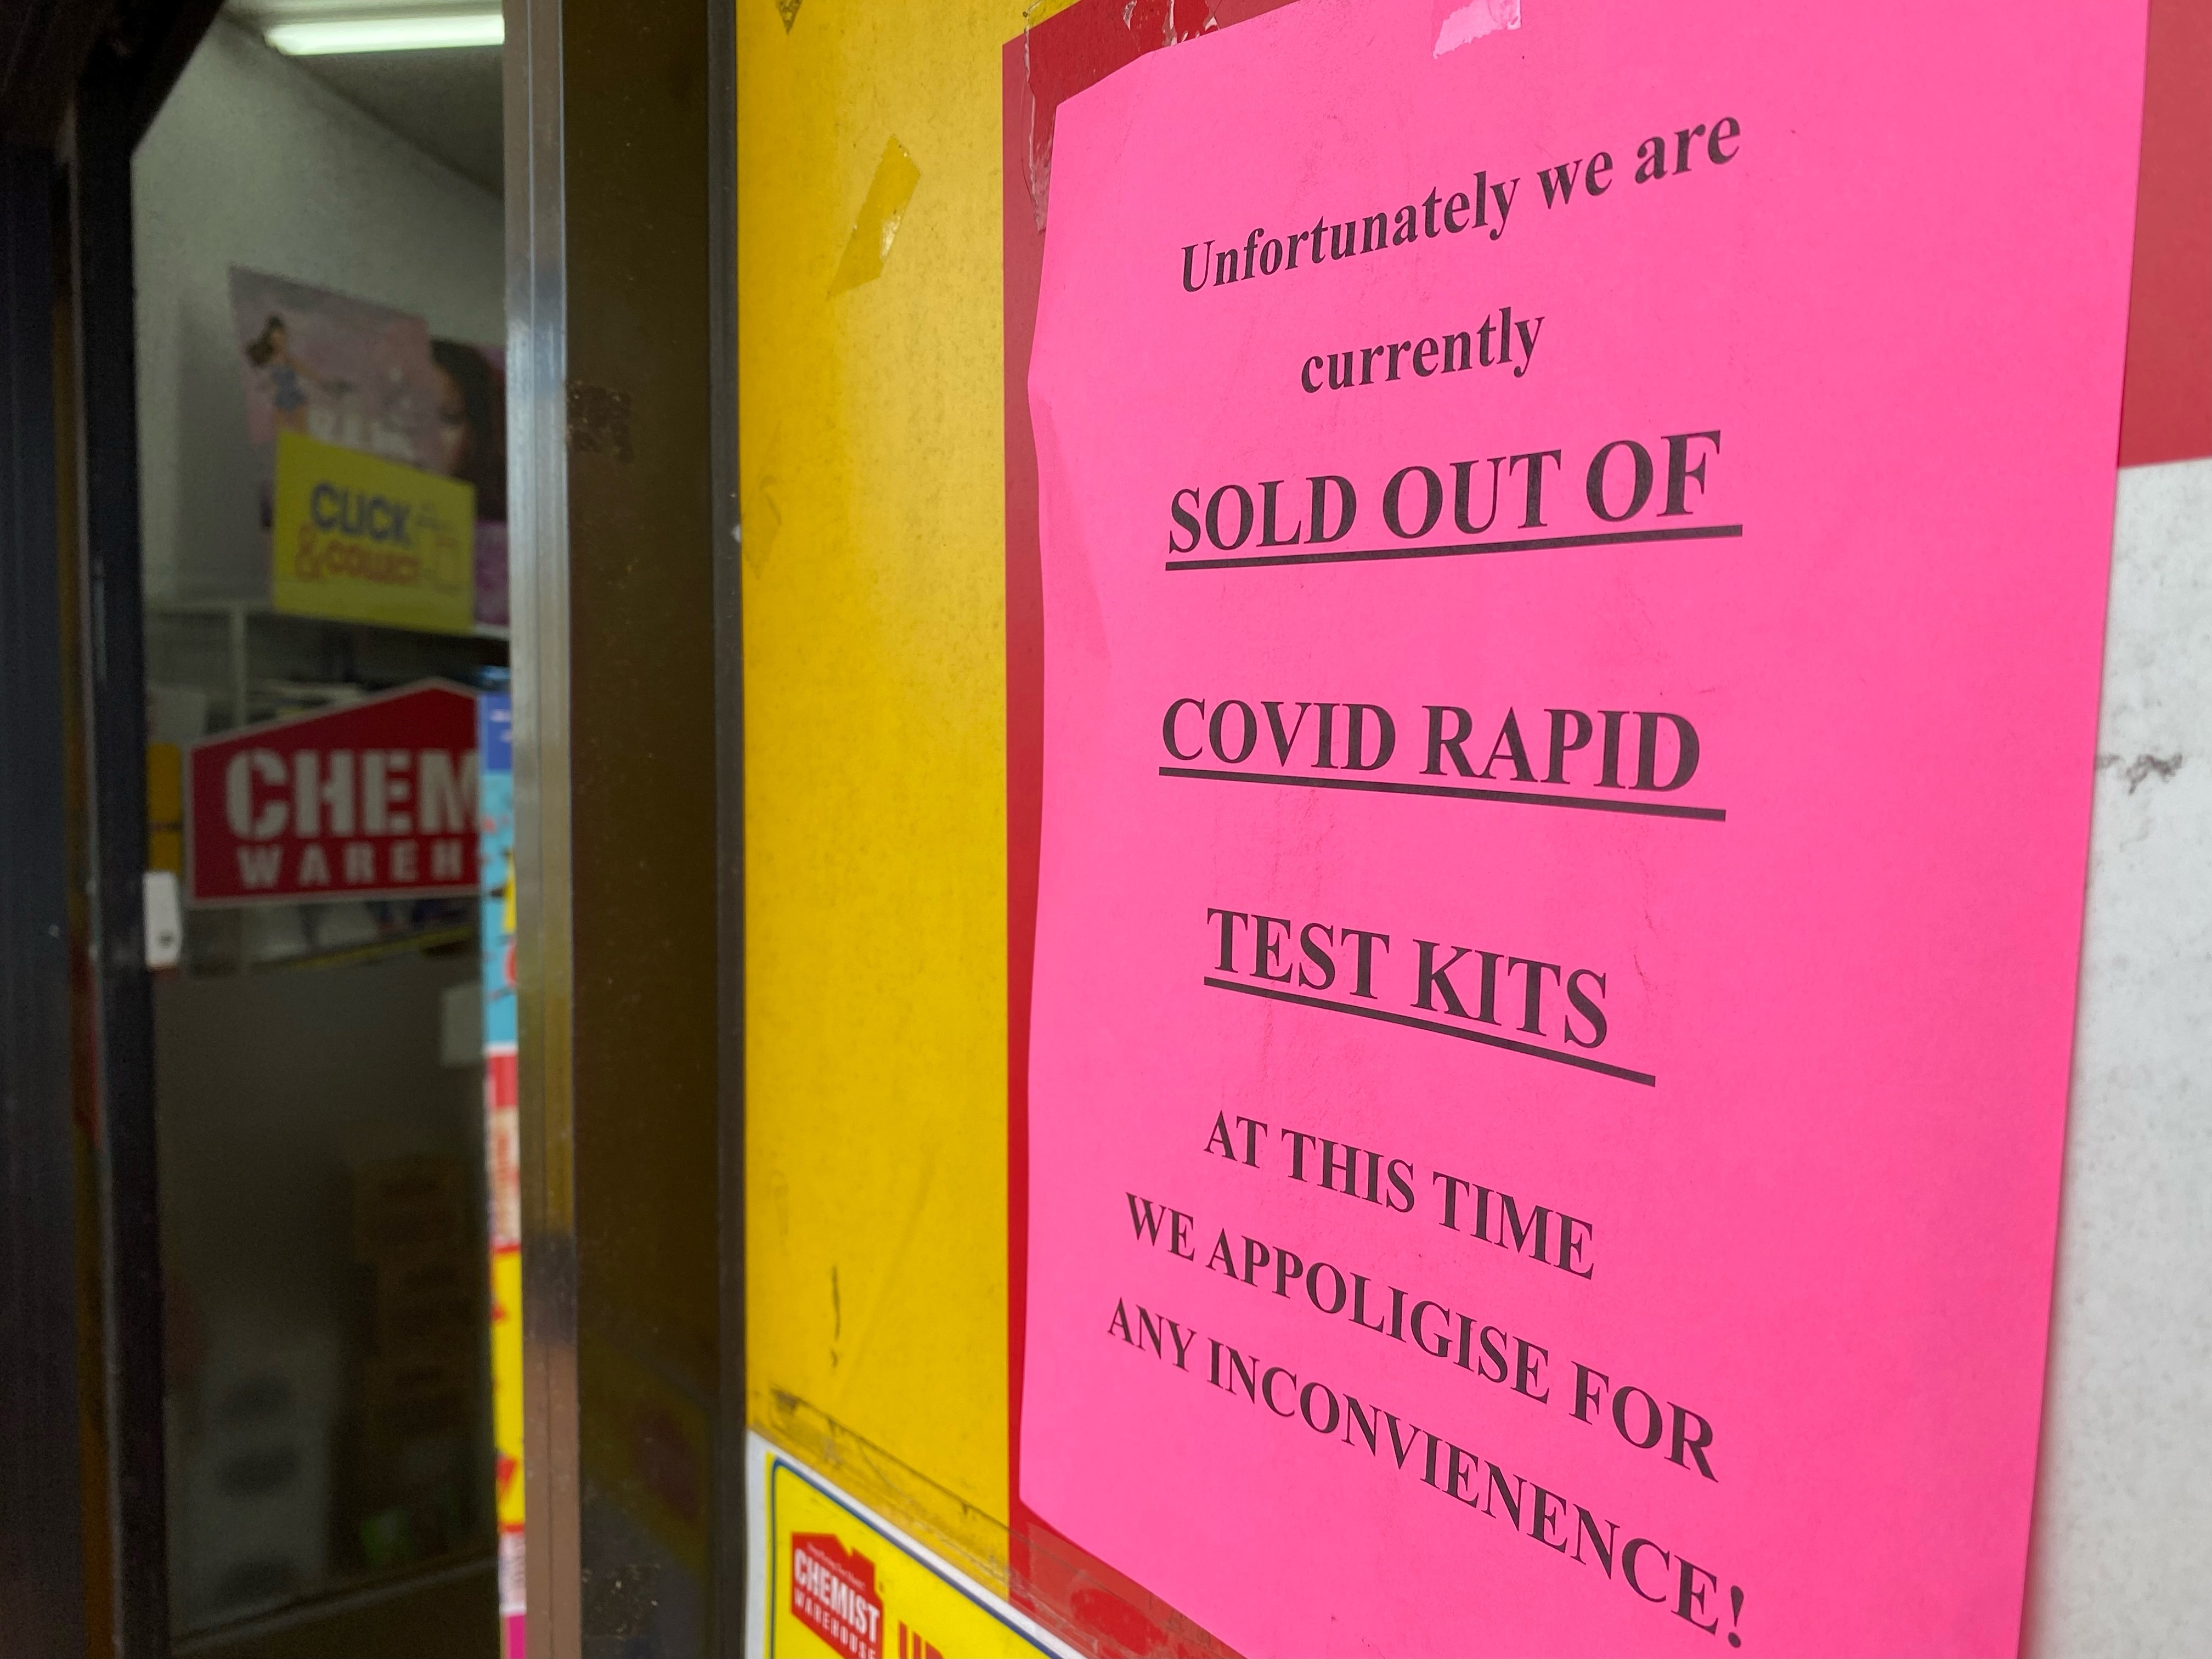 CLICK
& COLLECT
CHEM
WAREH
Unfortunately we are
currently
SOLD OUT OF
COVID RAPID
TEST KITS
AT THIS TIME
WE APPOLIGISE FOR
ANY INCONVIENENCE!
CHEMIST
WAREHOUSE